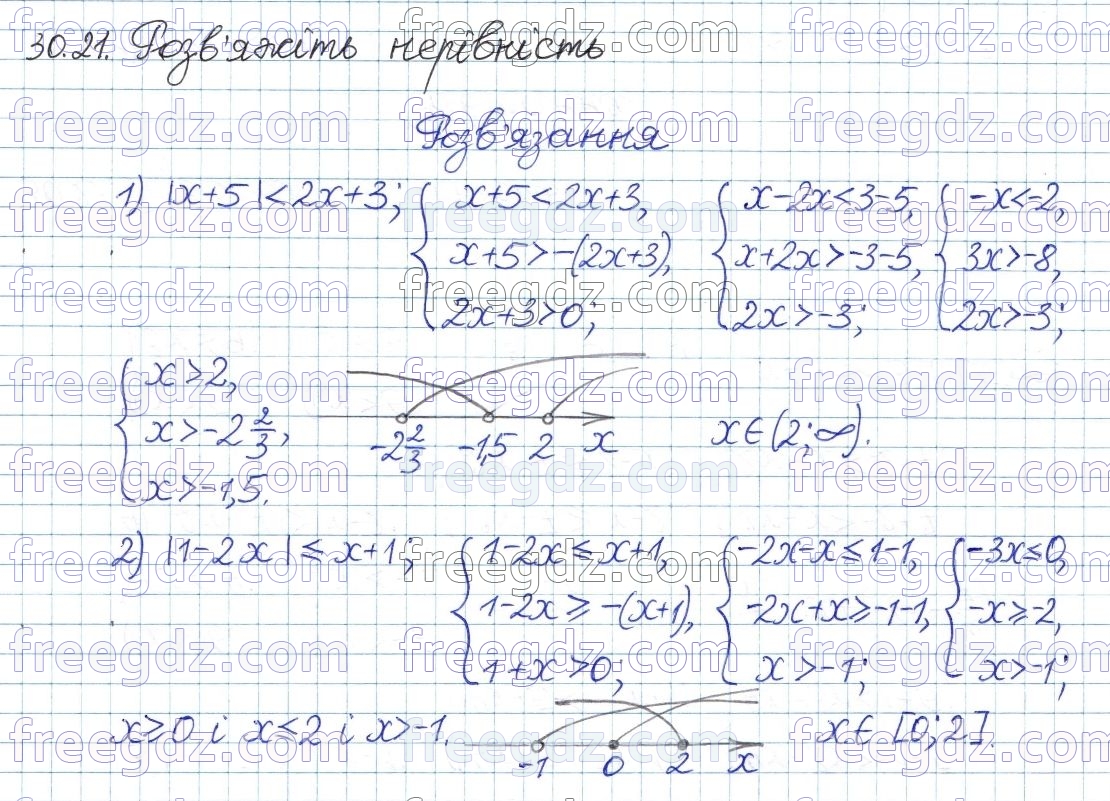 30.21. Розв'яжіть нерівність
Розв'язання
1) |x+5|<2x+3; { x+5<2x+3, x+5>-(2x+3), 2x+3>0; { x-2x<3-5, x+2x>-3-5, 2x>-3; { -x<-2, 3x>-8, 2x>-3;
{ x>2, x>-2 2/3, x>-1,5.
-2 2/3 -1,5 2 x
x∈(2;∞).
2) |1-2x|≤x+1; { 1-2x≤x+1, 1-2x≥-(x+1), 1+x>0; { -2x-x≤1-1, -2x+x≥-1-1, x>-1; { -3x≤0, -x≥-2, x>-1;
x≥0 і x≤2 і x>-1.
-1 0 2 x
x∈[0;2].
freegdz.com